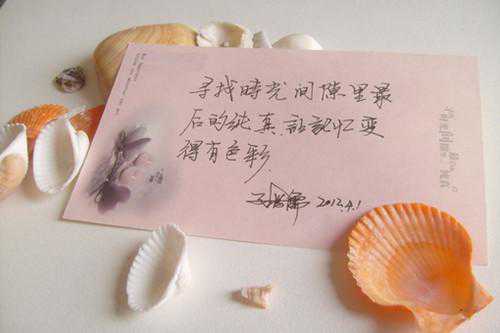 寻找時光间隙里最
后的纯真，让記忆变
得有色彩.
2012.4.1